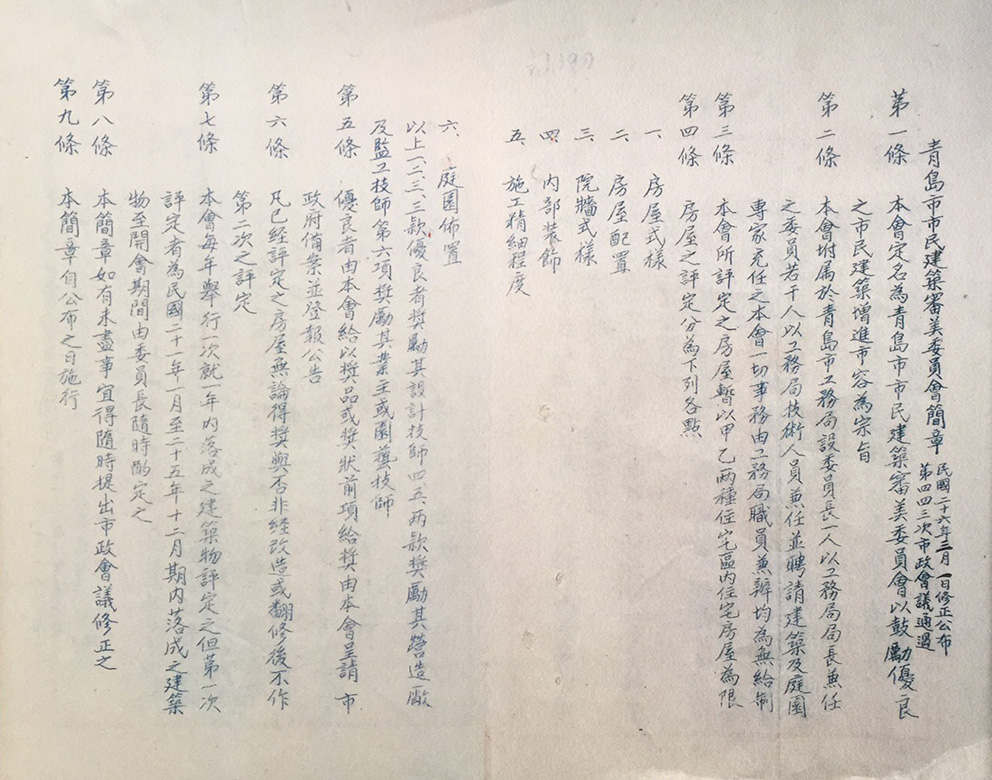 青島市市民建築審美委員會簡章
民國二十六年三月一日修正公布
第四四三次市政會議通過
第一條　本會定名為青島市市民建築審美委員會以鼓勵優良
之市民建築增進市容為宗旨
第二條　本會附属於青島市工務局設委員長一人以工務局局長兼任
之委員若干人以工務局技術人員兼任並聘請建築及庭園
專家充任之本會一切事務由工務局職員兼辦均為無給制
第三條　本會所評定之房屋暫以甲乙兩種住宅區内住宅房屋為限
第四條　房屋之評定分為下列各點
一、房屋式樣
二、房屋配置
三、院牆式樣
四、内部装飾
五、施工精細程度
六、庭園佈置
以上一、二、三、款優良者奬勵其設計技師四、五、兩款奬勵其營造廠
及監工技師第六項奬勵其業主或園藝技師
第五條　優良者由本會給以奬品或奬狀前項給奬由本會呈請市
政府備案並登報公告
第六條　凡已經評定之房屋無論得奬與否非經改造或翻修後不作
第二次之評定
第七條　本會每年舉行一次就一年内落成之建築物評定之但第一次
評定者為民國二十一年一月至二十五年十二月期内落成之建築
物至開會期間由委員長隨時酌定之
第八條　本簡章如有未盡事宜得隨時提出市政會議修正之
第九條　本簡章自公布之日施行